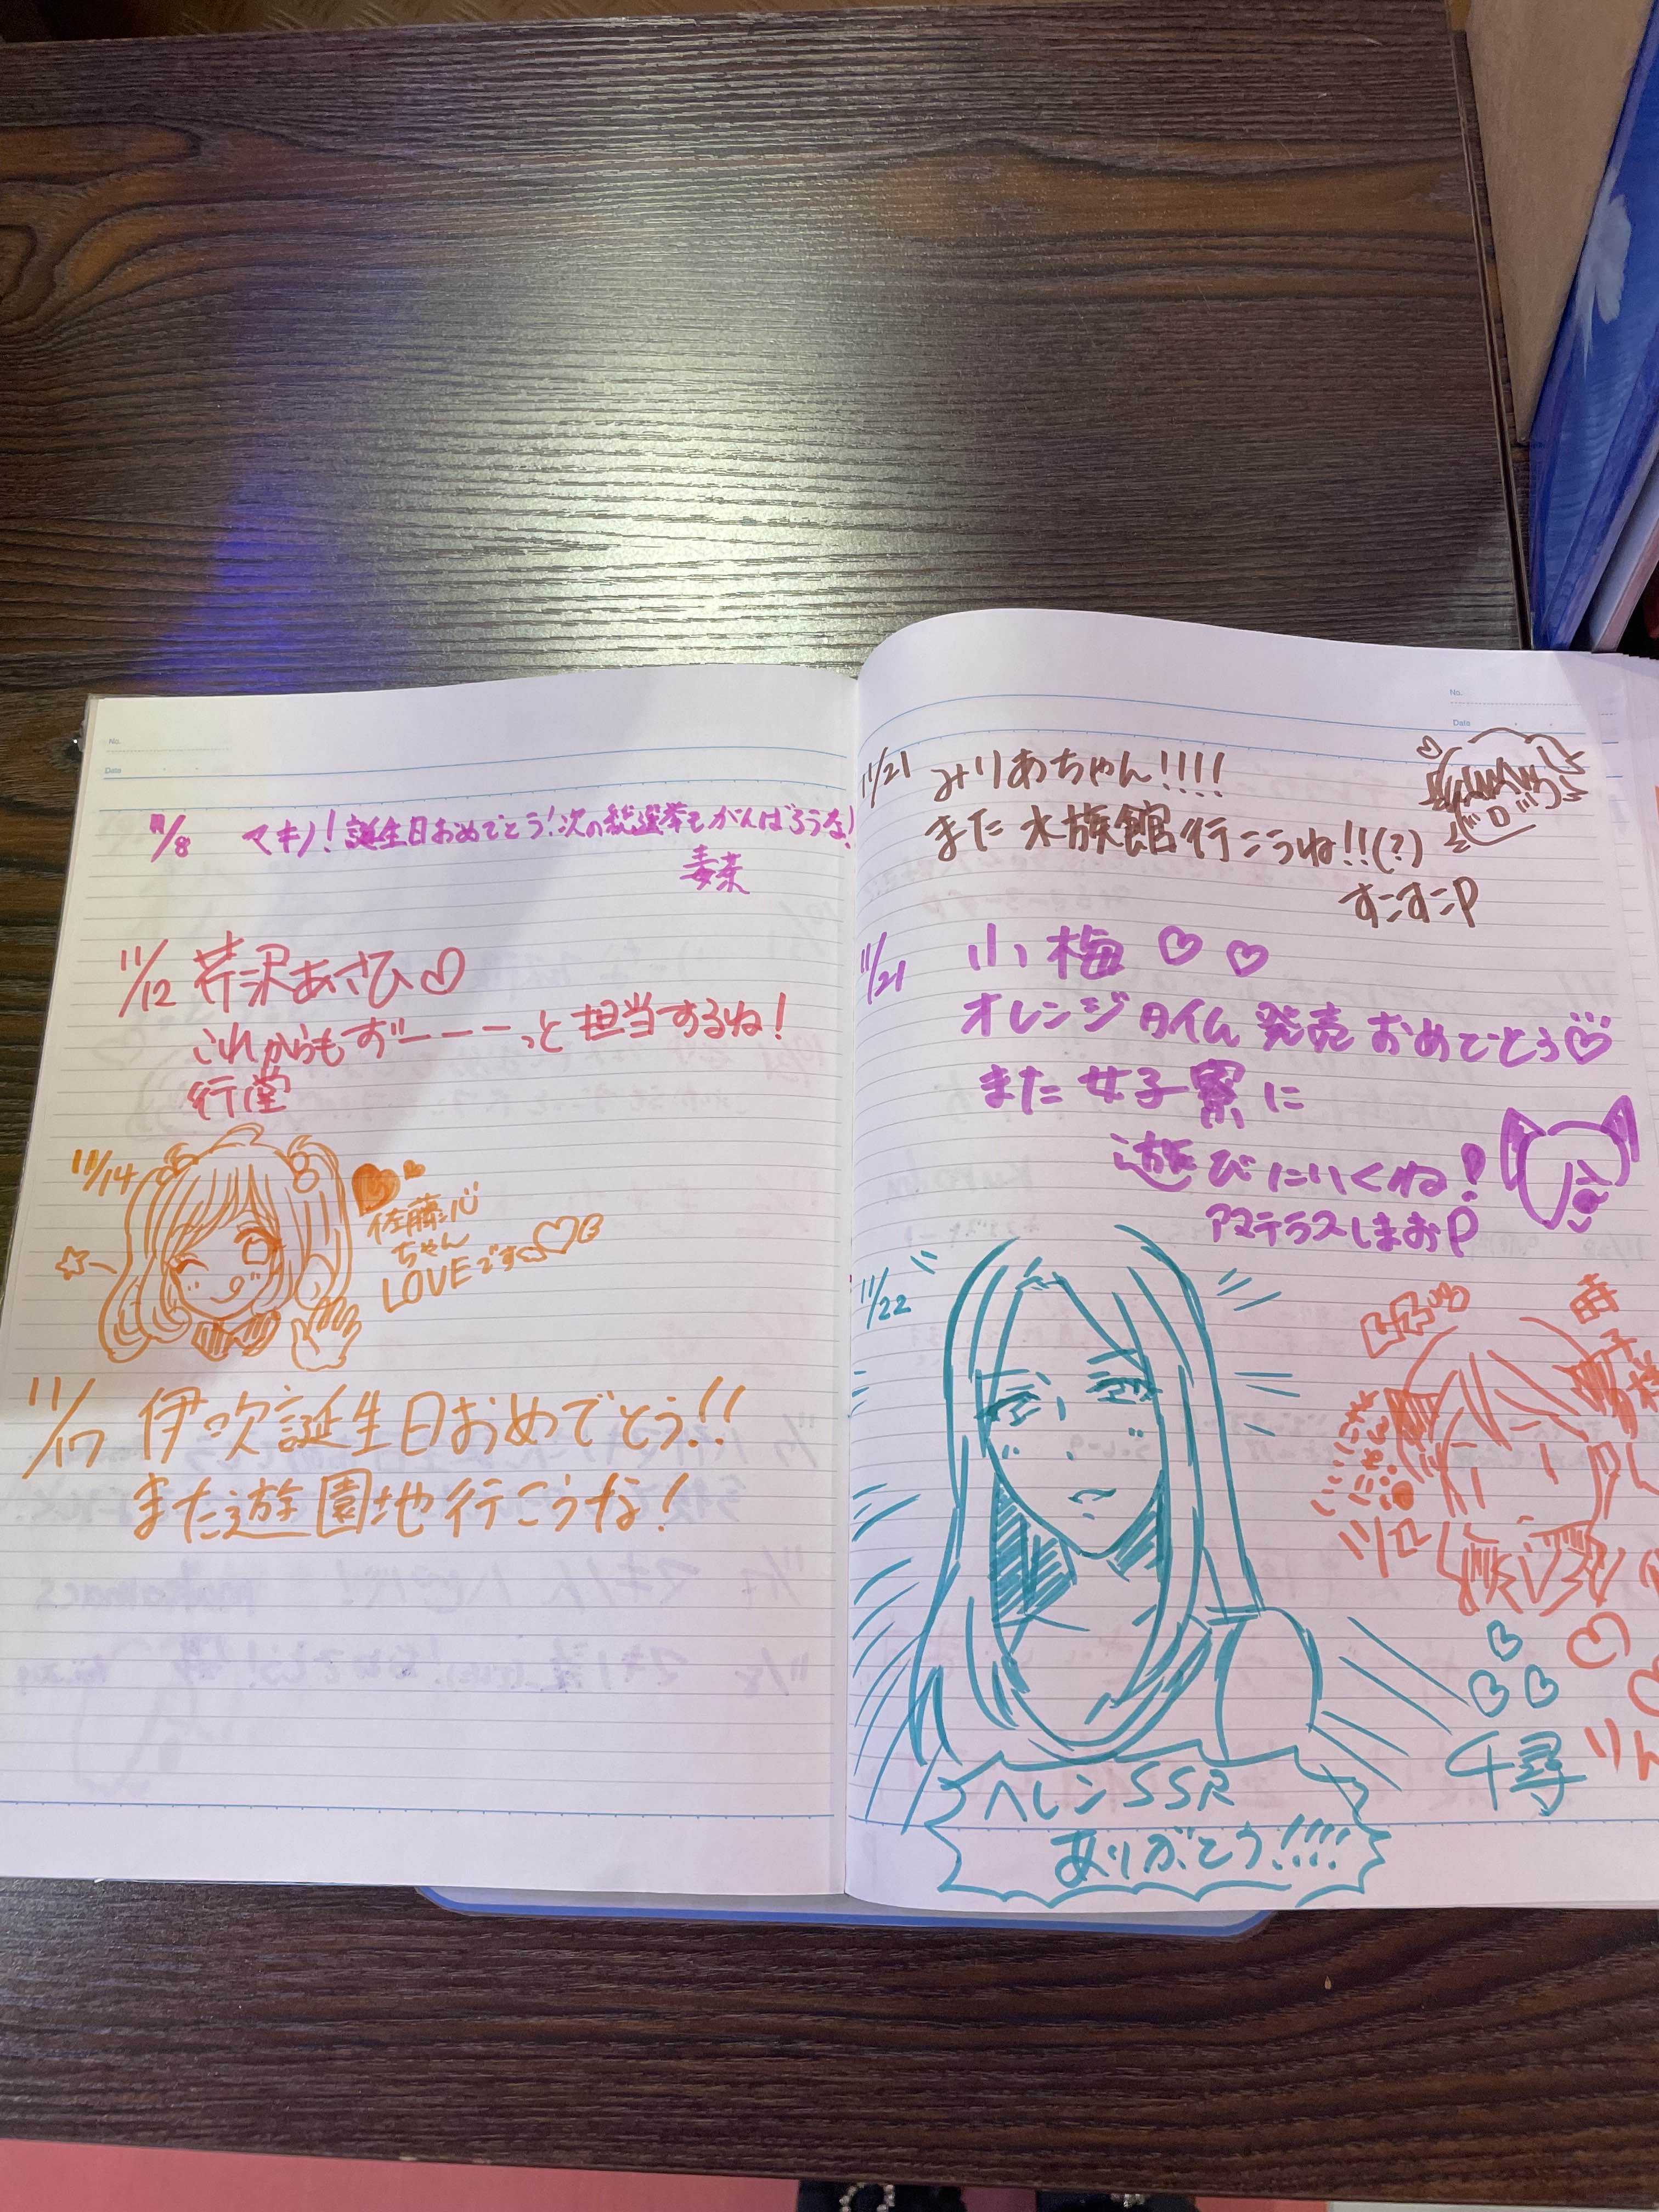 No.
Date
11/8 マキノ!誕生日おめでとう!次の総選挙もがんばろうな!
11/12 芹沢あさひ♡
これからもずーーーっと担当するね!
行堂
11/14
佐藤心
ちゃん
LOVEです
11/17 伊吹誕生日おめでとう!!
また遊園地行こうな!
No.
Date
11/21 みりあちゃん!!!!
また水族館行こうね!!(?)
すこすこP
11/21 小梅♡♡
オレンジタイム発売おめでとう♡
また女子寮に
遊びにいくね!
アマテラスしまおP
11/22
ヘレンSSR
ありがとう!!!!
千尋
時
子
様
りん